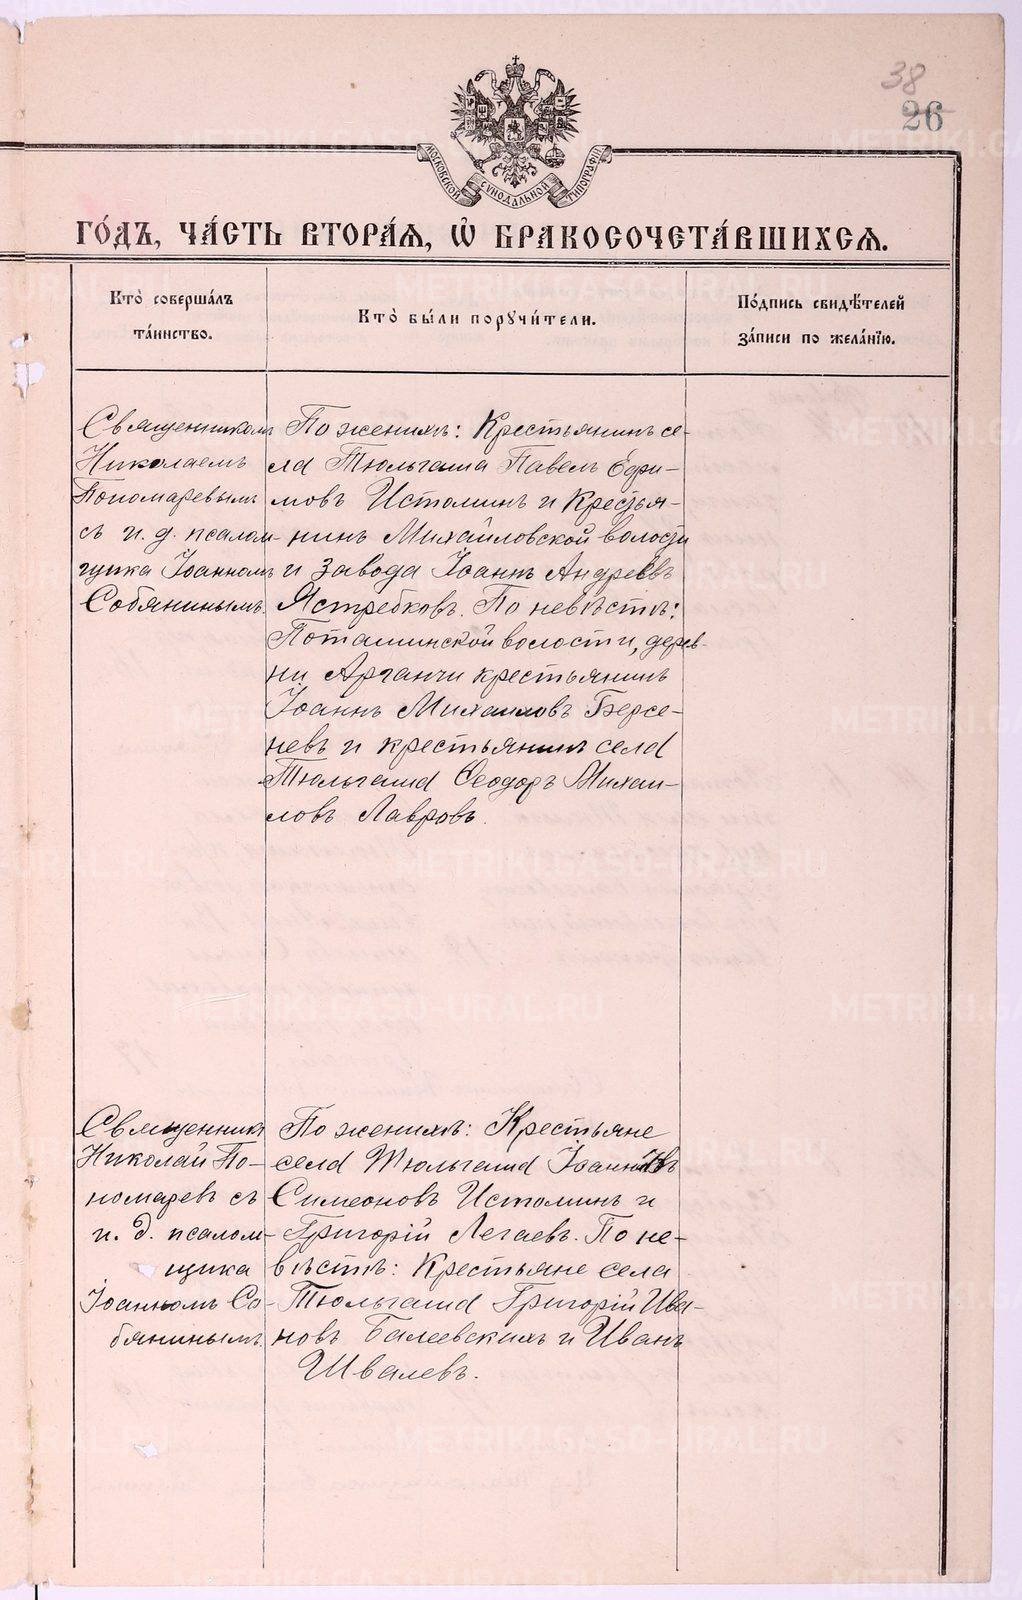 38
26
МОСКОВСКОЙ СѴНОДАЛЬНОЙ ТИПОГРАФІИ
ГО́ДЪ, ЧА́СТЬ ВТОРА́Я, Ѡ҆ БРАКОСОЧЕТА́ВШИХСЯ.
Кто̀ соверша́лъ
та́инство.
Кто̀ бы́ли порꙋчи́тели.
По́дпись свидѣ́телей
за́писи по жела́нїю.
Священникомъ
Николаемъ
Пономаревымъ
съ и. д. псалом-
щика Іоанномъ
Собянинымъ.
По женихѣ: Крестьянинъ се-
ла Тюльгаша Павелъ Ефи-
мовъ Истоминъ и Крестья-
нинъ Михайловской волости
и завода Іоаннъ Андреевъ
Ястребковъ. По невѣстѣ:
Поташинской волости, дерев-
ни Арганчи крестьянинъ
Іоаннъ Михаиловъ Берсе-
невъ и крестьянинъ села
Тюльгаша Ѳеодоръ Михаи-
ловъ Лавровъ.
Священникъ
Николай По-
номаревъ съ
и. д. псалом-
щика
Іоанномъ Со-
бянинымъ.
По женихѣ: Крестьяне
села Тюльгаша Іоаннъ
Симеоновъ Истоминъ и
Григорій Легаевъ. По не-
вѣстѣ: Крестьяне села
Тюльгаша Григорій Ива-
новъ Балеевскихъ и Иванъ
Швалевъ.
METRIKI.GASO-URAL.RU